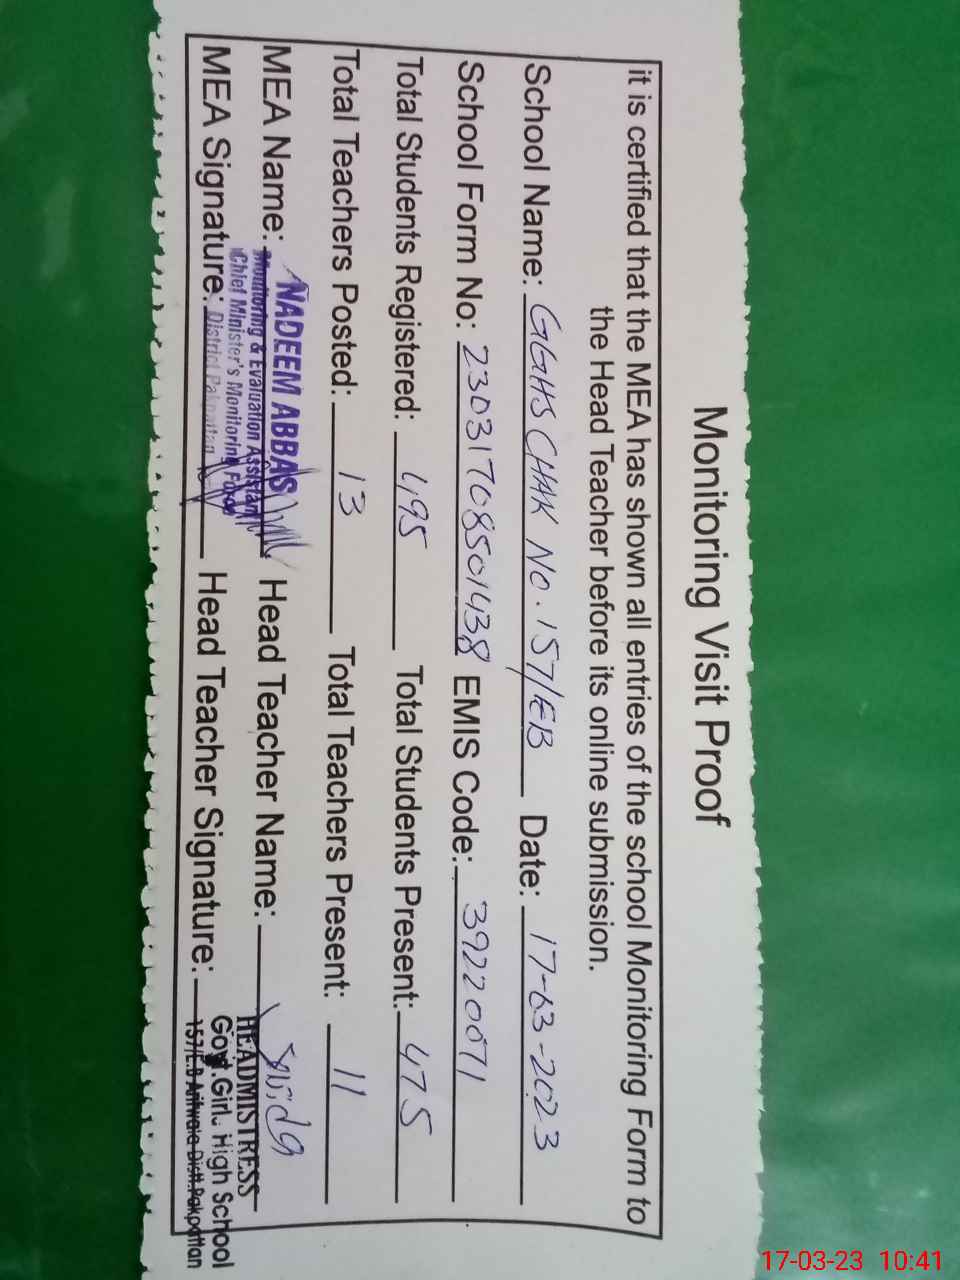 Monitoring Visit Proof
it is certified that the MEA has shown all entries of the school Monitoring Form to
the Head Teacher before its online submission.
School Name: GGHS CHAK No. 157/EB Date: 17-03-2023
School Form No: 23031708501438 EMIS Code: 39220071
Total Students Registered: 495 Total Students Present: 475
Total Teachers Posted: 13 Total Teachers Present: 11
MEA Name: NADEEM ABBAS Head Teacher Name:
Monitoring & Evaluation Assistant
Chief Minister's Monitoring Force
MEA Signature: District Pakpattan Head Teacher Signature:
HEADMISTRESS
Govt. Girls High School
157/E.B Arifwala Distt. Pakpattan
17-03-23 10:41